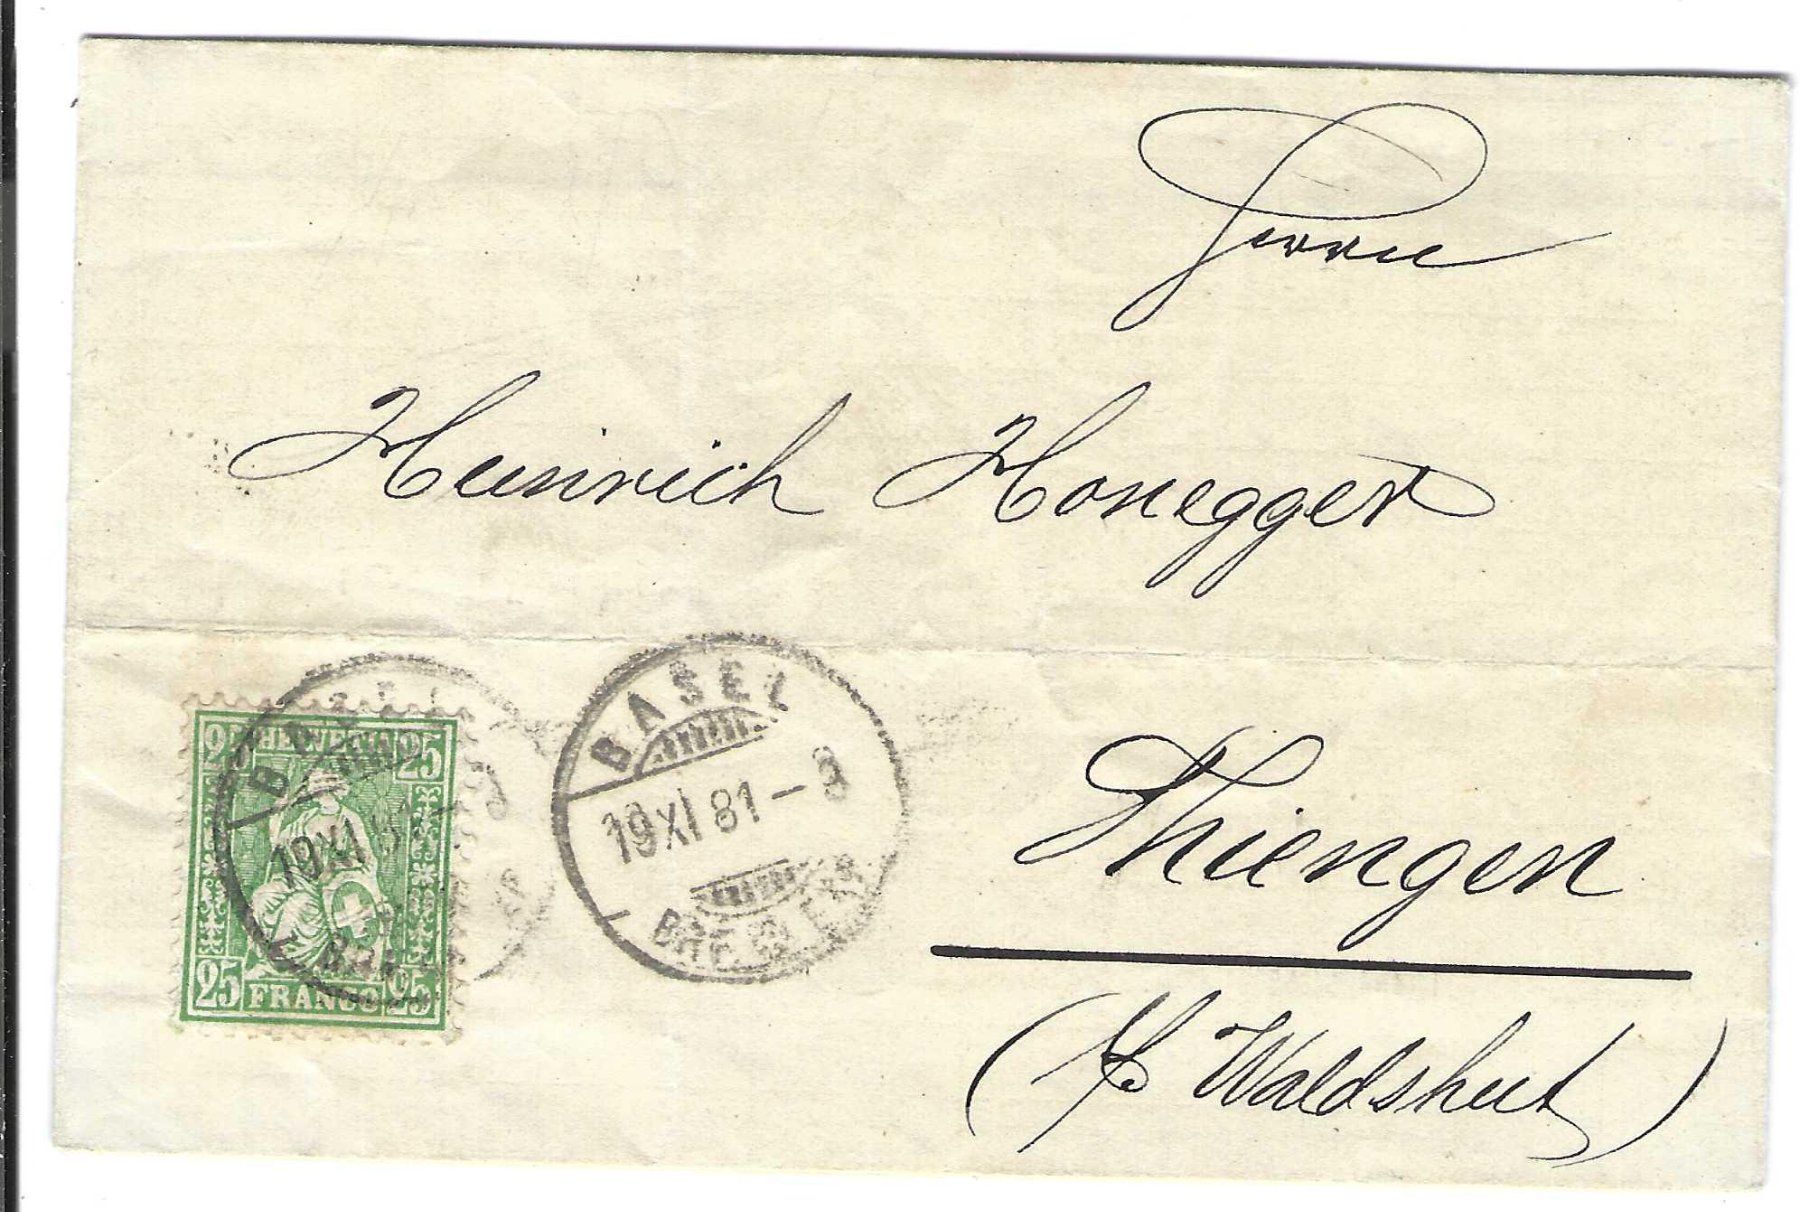 Herrn
Heinrich Honegger
Thiengen
(p Waldshut)
BASEL
19 XI 81 - 8
HELVETIA
25 25
25 FRANCO 25
BASEL
19 XI 81 - 8